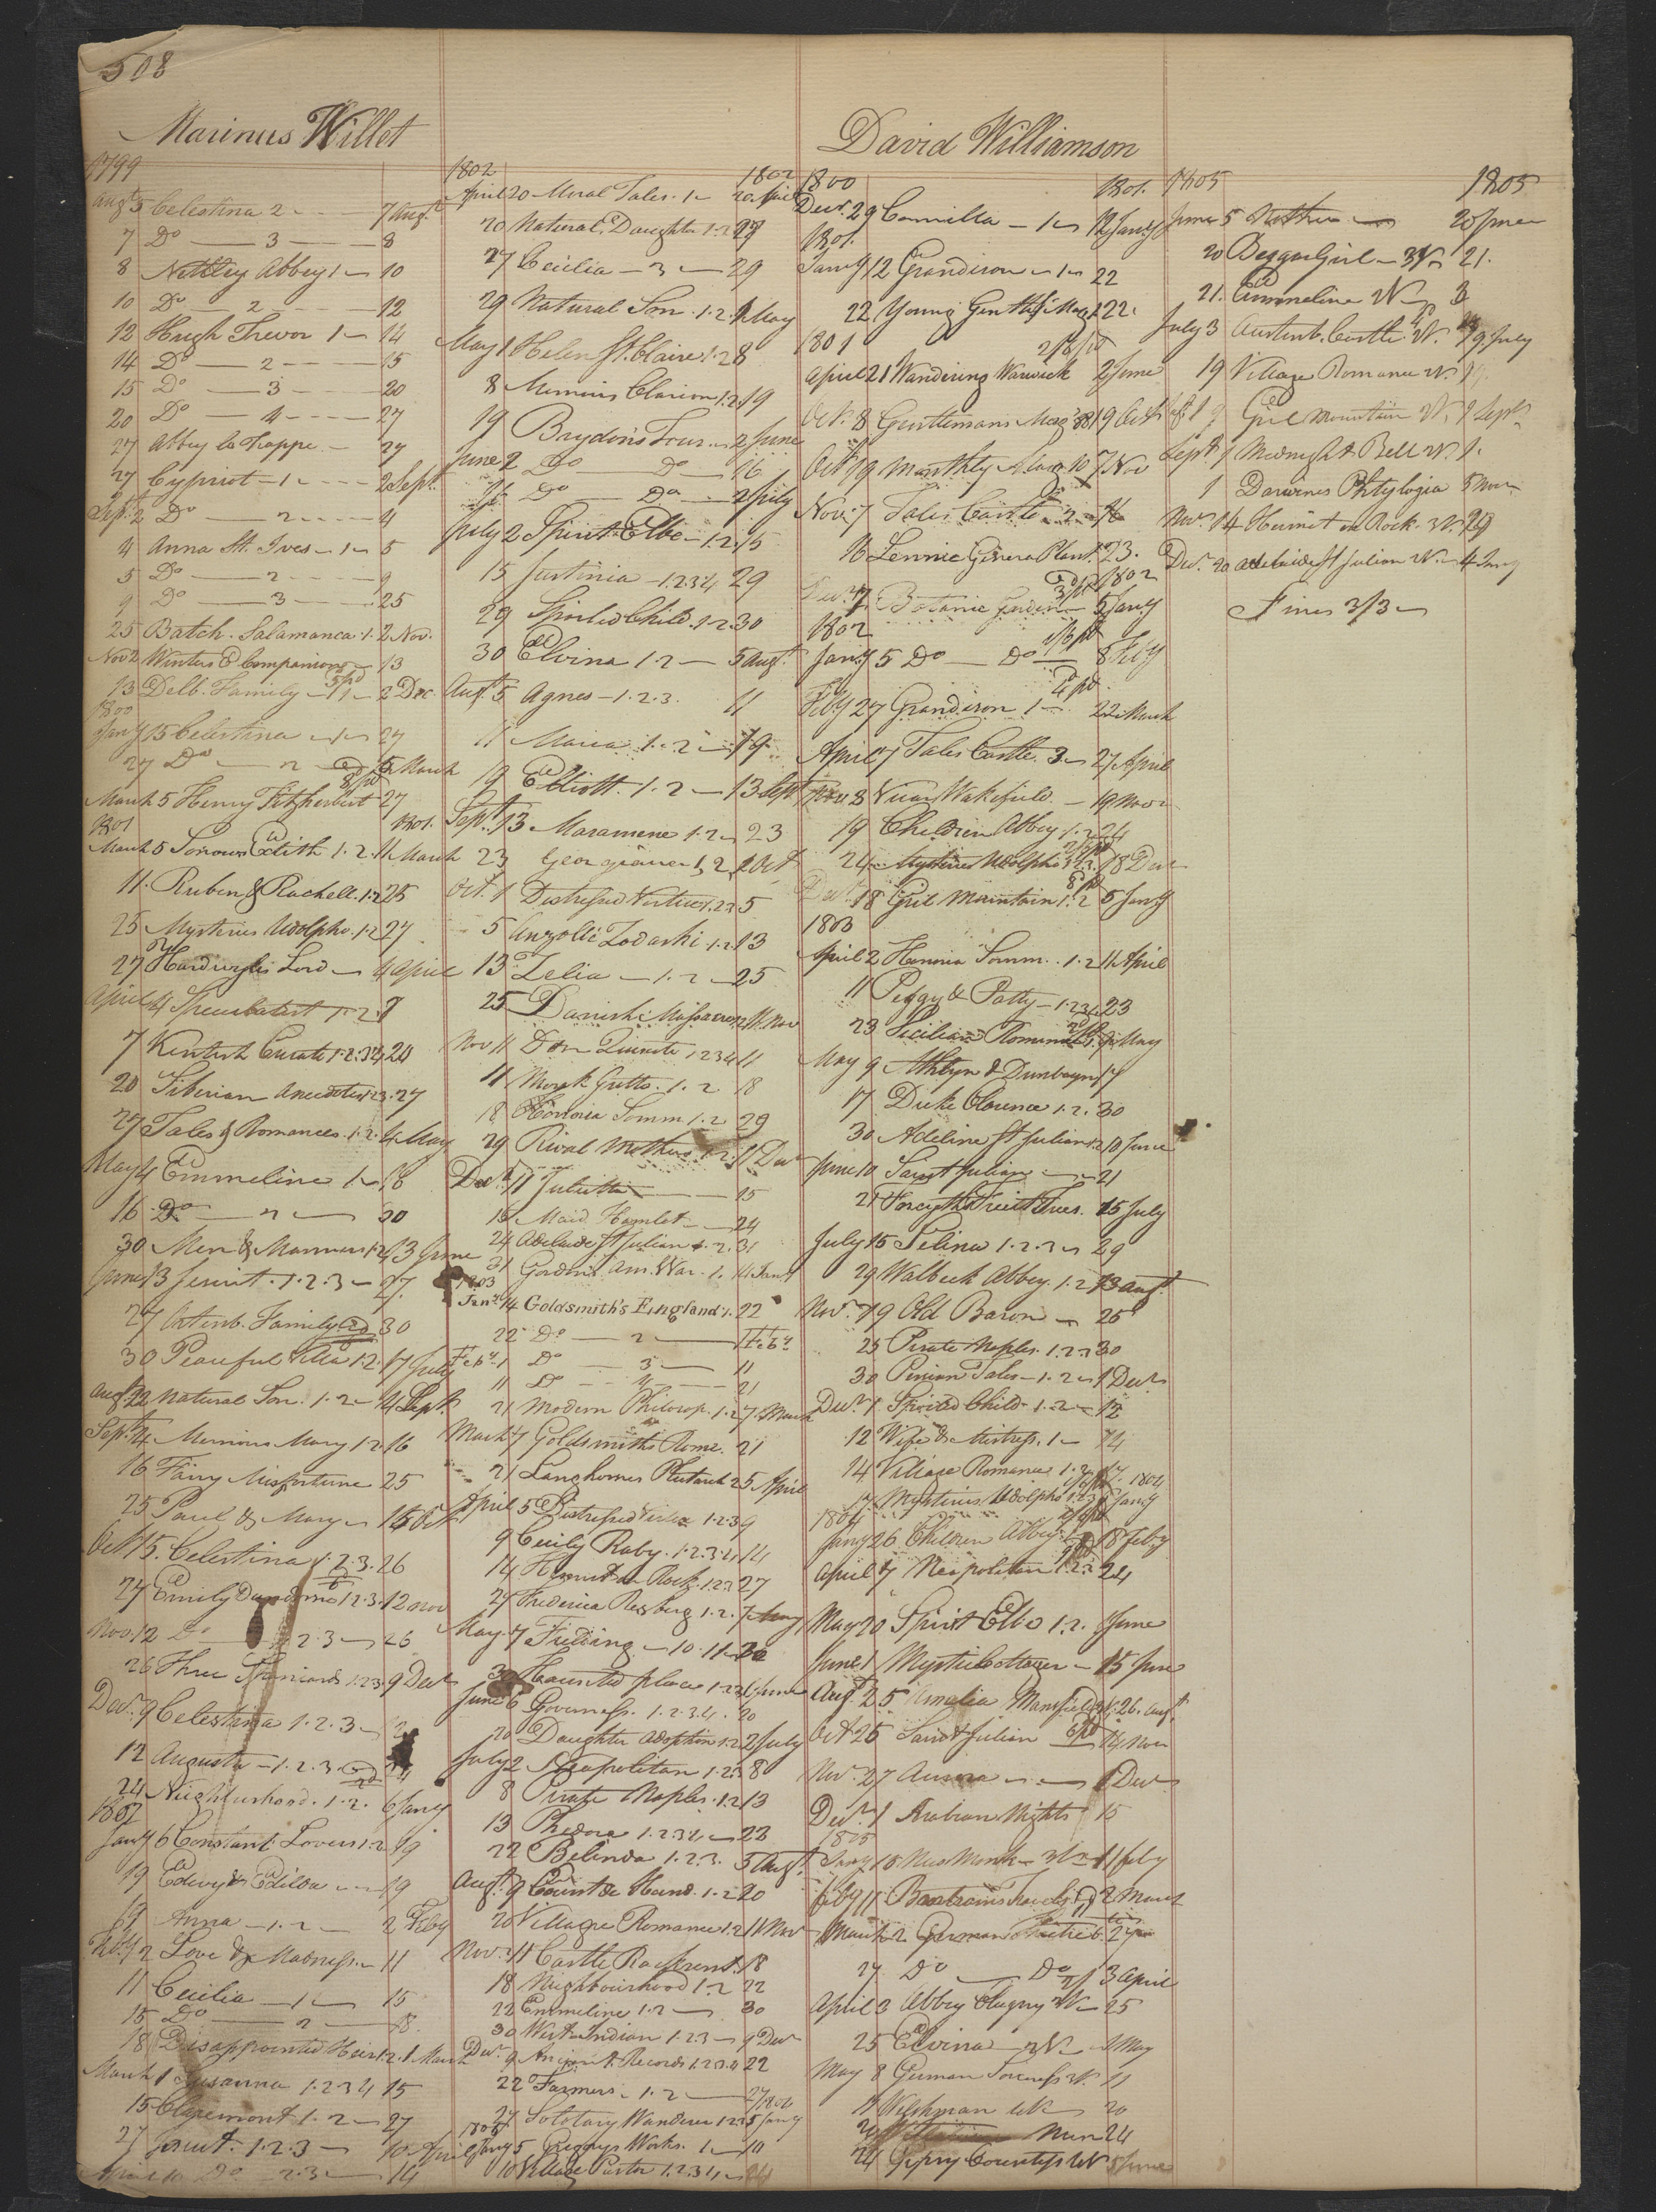 508
Marinus Willet
1799
Augt 5 Celestina 2 7 Augt
7 Do 3 8
8 Nettley Abbey 1 10
10 Do 2 12
12 Hugh Trevor 1 14
14 Do 2 15
15 Do 3 20
20 Do 4 27
27 Abbey la Trappe 27
27 Cypriot 1 2 Sept.
Sept. 2 Do 2 4
4 Anna St. Ives 1 5
5 Do 2 9
9 Do 3 25
25 Batch. Salamanca 1. 2 Nov.
Nov 2 Winters & Companions 13
13 Delb. Family 1 2 Dec.
1800
Jany 15 Celestina 1 27
27 Do 2 5 March
8d pd
March 5 Henry Fitzherbert 27
1801 1801.
March 5 Sorrows Edith 1.2. 11 March
11. Ruben & Rachell. 1.2 25
25 Mysteries Udolpho. 1.2 27
27 Lord 4 April
April 4 Speculatist 1.2 7
7 Kentish Curate 1.2.3.4 20
20 Siberian Anecdotes 1.2.3. 27
27 Tales & Romances. 1.2. 4 May
May 4 Emmeline 1 16
16 Do 2 30
30 Men & Manners 1.2 13 June
June 13 Jesuit. 1.2.3 27.
27 Ortenb. Family 30
30 Peaceful Villa 1.2. 17 July
Augt 22 Natural Son. 1.2 4 Sept.
Sept. 4 Memoirs Mary 1.2 16
16 Fanny Misfortune 25
25 Paul & Mary 15 Oct
Oct 15. Celestina 1.2.3. 26
27 Emily 1.2.3. 12 Nov
Nov. 12 Do 2.3 26
26 Three Spaniards 1.2.3. 9 Decr
Decr. 9 Celestina 1.2.3
12 Augusta 1.2.3.
24 Neighbourhood. 1.2. 6 Jany
1802
Jany 6 Constant Lovers 1.2 19
19 Edwy & Edilda 19
19 Anna 1.2 2 Feby
Feby 2 Love & Madness 11
11 Cecilia 1 15
15 Do 2 18.
18 Disappointed Heir 1.2. 1 March
March 1 Susanna 1.2 3 4 15
15 Claremont 1.2 27
27 Jesuit. 1.2.3 10 April
April 10 Do 2.3 14
1802 1802
April 20 Moral Tales. 1 20 April
20 Natural Daughter 1.2 27
27 Cecilia 3 29
29 Natural Son. 1.2. 1 May
May 1 Helen St. Claire 1.2 8
8 Memoirs Clarion 1.2. 19
19 Brydon's Tour 2 June
June 2 Do Do 16
16 Do Do 2 July
July 2 Spirit Elbe 1.2. 15
15 Justinia 1.2 3 4 29
29 Spoiled Child. 1.2. 30
30 Elvina 1.2 5 Augt.
Augt. 5 Agnes 1.2.3. 11
11 Maria 1.2 19.
19 Elliott. 1.2 13 Sept
Sept. 13 Maramene 1.2 23
23 Georgiana 1.2. 1 Oct
Oct. 1 Distressed Virtue 1.2 3 5
5 Zodaski 1.2. 13
13 Zelia 1.2 25
25 Danish Massacre 1.2 11. Nov
Nov 11 Don Quixote 1 2 3 4 11
11 Monk Grotto. 1.2 18
18 Honoria Somm 1.2 29
29 Rival Mothers 1.2. 11 Decr
Decr. 11 Julietta 15
15 Maid Hamlet 24
24 Adelaide St Julian 1.2. 31
31 Gordons Am. War. 1. 14 Jany
1803
Jany. 14 Goldsmith's England 1. 22
22 Do 2 1 Feby.
Feby. 1 Do 3 11
11 Do 4 21
21 Modern Philosop. 1.2 7. March
March 7 Goldsmiths Rome. 21
21 Langhornes Plutarch 2 5 April
April 5 Distressed Virtue 1.2 3 9
9 Cecily Raby. 1.2.3.4 14
14 Hermit on Rock. 1.2 3 27
27 Frederica Risberg 1.2. 7 May
May 7 Fielding 10.11 30
30 Haunted place 1.2 6 June
June 6 Governess. 1.2.3.4. 20
20 Daughter Adoption 1.2 2 July
July 2 Neapolitan 1.2.3 8
8 Pirate Naples. 1.2. 13
13 Phedora 1.2 3 4 22
22 Belinda 1.2.3. 5 Augt.
Augt. 9 Count de 1.2 20
20 Village Romance 1.2 11 Nov
Nov. 11 Castle Rackrent. 18
18 Neighbourhood 1.2 22
22 Emmeline 1.2 30
30 West Indian 1.2.3 9 Decr
Decr. 9 Ancient Records 1.2 3.4 22
22 Farmers 1.2 27
1804
27 Solotary Wanderer 1.2 3 5 Jany
Jany 5 Gregorys Works. 1 10
10 Village Pastor 1.2.3.4 24
David Williamson
1800 1801.
Decr. 29 Camilla 1 12 Jany
1801.
Jany 12 Grandison 1 22
22 Young Gentls. Magz 1 22.
1801 2/6 pd
April 21 Wandering Warwick 2 June
Oct. 8 Gentlemans Mag 88 19 Oct
Oct 19 Monthly 10 7 Nov
Nov. 7 Tales Castle 2 16
16 Lennie Genera Plant. 23.
1802
Decr. 7 Botanic Garden 5 Jany
1802
Jany 5 Do Do 8 Feby
Feby 27 Grandison 1 22 March
April 7 Tales Castle. 3 27 April
Nov 8 Vicar Wakefield. 19 Nov
19 Children Abbey 1.2 24
24 Mysteries Udolpho 1.2.3. 18 Decr
Decr. 18 Girl Mountain 1.2 5 Jany
1803
April 2 Honoria Somm. 1.2 11 April
11 Peggy & Patty 1.2.3.4 23
23 Sicilian Romance 9 May
May 9 Athlyn & Dunbayn 17
17 Duke Clarence 1.2. 30
30 Adeline St Julian 1.2 10 June
June 10 Saint Julian 21
21 Forsyth Fruit Trees. 15 July
July 15 Selina 1.2.3 29
29 Walbeck Abbey. 1.2 13 Augt
Nov. 19 Old Baron 25
25 Pirate Naples. 1.2.3 30
30 Persian Tales 1.2 1 Decr
Decr. 1 Spoiled Child 1.2 12
12 Wife & Mistress. 1 14
14 Village Romance 1.2 17.
1804
17. Mysteries Udolpho 1.2.3 Jany
1804
Jany 26 Children Abbey 18 Feby
April 7 Neapolitan 1.2.3 24
May 20 Spirit Elbe 1.2. 1 June
June 1 Mystic Cottager 15 June
Augt. 25 Amelia Mansfield 26. Augt.
Oct 26 Saint Julian 14 Nov
Nov. 27 Aurora 1 Decr
Decr. 1 Arabian Nights 15
1805
Jany 15 New Monk 3 11 Feby
Feby 11 Bartrams Travels 2 March
March 2 German Theatre 6. 27
27 Do Do 3 April
April 3 Abbey Clugny 25
25 Elvina 1 May
May 8 German Sorceress 11
11 Welshman 20
20 Nun 24
24 Gipsy Countess 5 June
1805 1805
June 5 20 June
20 Beggar Girl 3 21.
21. Emmeline 3
July 3 Austenb. Castle 19 July
19 Village Romance
Girl Mountain 1 Sept.
Sept 1 Midnight Bell 1.
1 Darwines Phtylogia 5 Nov
Nov. 14 Hermit on Rock. 29
Decr. 20 Adelaide St Julian 4 Jany
Fines 3/3